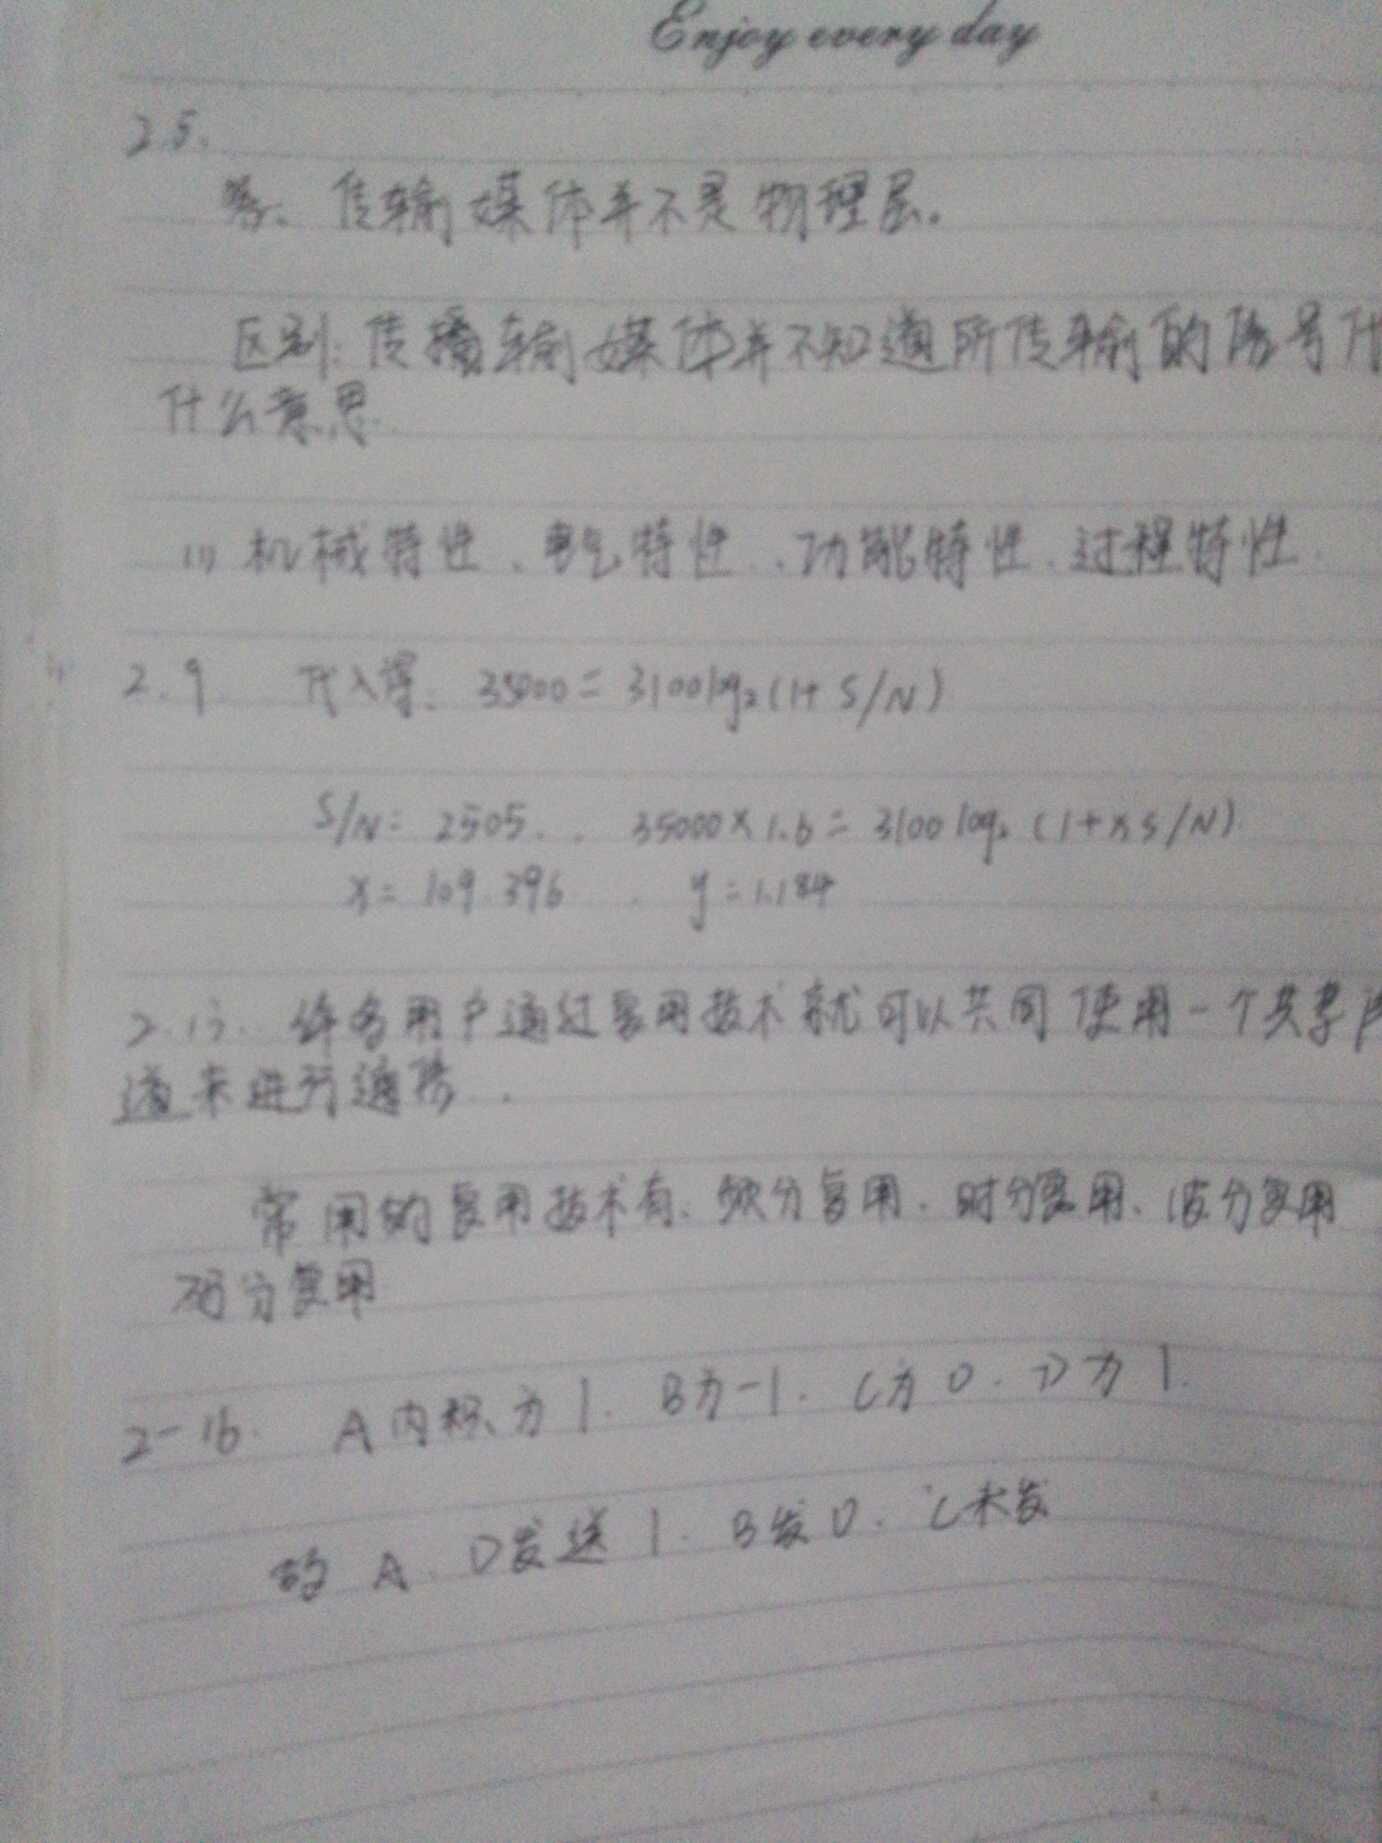 Enjoy every day
2.5.
答、传输媒体并不是物理层.
区别: 传播输媒体并不知道所传输的信号代
什么意思.
(1) 机械特性、电气特性、功能特性、过程特性.
2.9 代入得. 35000 = 3100log₂(1+S/N)
S/N = 2505. 35000×1.6 = 3100log₂(1+xS/N).
x = 109.396 . y = 1.184
2.13. 许多用户通过复用技术就可以共同使用一个共享信
道来进行通信.
常用的复用技术有、频分复用、时分复用、波分复用
码分复用
2-16. A内积为1. B为-1. C为0. D为1.
故 A、D发送1. B发0. C未发